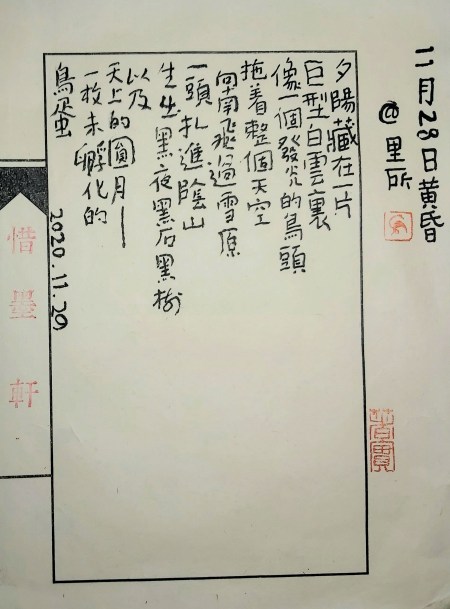 11月28日黄昏
@里所
夕陽藏在一片
巨型白雲裏
像一個發光的鳥頭
拖着整個天空
向南飛過雪原
一頭扎進陰山
生出黑夜黑石黑樹
以及
天上的圓月—
一枚未孵化的
鳥蛋
2020.11.29
惜墨軒